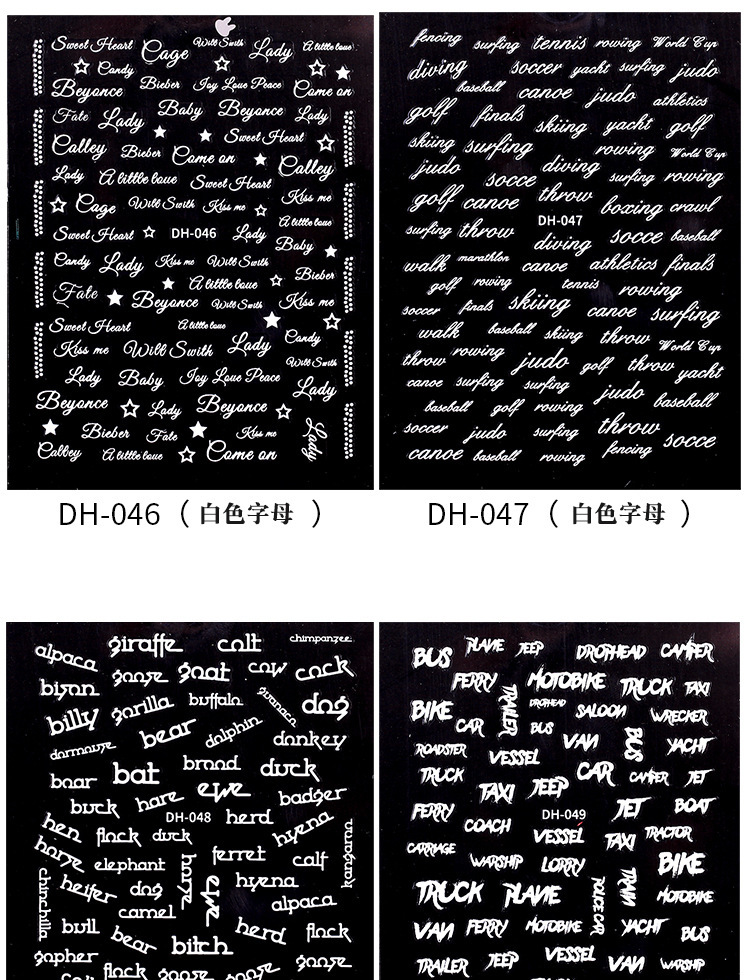 Sweet Heart Cage Will Smith Lady A little love
Candy
Beyonce Bieber Joy Love Peace Come on
Fate Lady Baby Beyonce Lady
Calley Bieber Come on Sweet Heart
Calley
Lady A little love Sweet Heart
Cage Will Smith Kiss me Kiss me
A little love
Sweet Heart DH-046 Lady
Baby
Candy Lady Kiss me Will Smith
A little love Bieber
Fate Beyonce Will Smith Kiss me
Sweet Heart A little love
Kiss me Will Smith Lady Candy
Will Smith
Lady Baby Joy Love Peace
Lady
Beyonce Lady Beyonce
Bieber Fate Kiss me Lady
Calley A little love Come on
DH-046（白色字母）
fencing surfing tennis rowing World Cup
diving soccer yacht surfing judo
baseball canoe judo athletics
golf finals skiing yacht golf
skiing surfing rowing World Cup
judo socce diving surfing rowing
golf canoe throw boxing crawl
DH-047
surfing throw diving socce baseball
walk marathlon canoe athletics finals
golf rowing tennis rowing
soccer finals skiing canoe surfing
walk baseball skiing throw World Cup
throw rowing judo golf throw yacht
canoe surfing surfing judo baseball
baseball golf rowing
soccer judo surfing throw socce
canoe baseball rowing fencing
DH-047（白色字母）
alpaca giraffe colt chimpanzee
bison goose goat cow cock
billy gorilla buffalo guanaco dog
dormouse bear dolphin donkey
boar bat brood duck
buck hare ewe badger
hen DH-048 herd hyena
horse flock duck ferret calf kangaroo
chinchilla elephant horse ewe hyena
heifer dog camel alpaca
bull bear bitch herd flock
gopher flock goose goose goose
BUS PLANE JEEP DROPHEAD CAMPER
FERRY MOTOBIKE TRUCK TAXI
BIKE TRAILER DROPHEAD SALOON WRECKER
CAR BUS VAN BUS YACHT
ROADSTER VESSEL
TRUCK TAXI JEEP CAR CAMPER JET
FERRY DH-049 JET BOAT
COACH VESSEL TAXI TRACTOR
CARRIAGE WARSHIP LORRY BIKE
TRUCK PLANE POLICE CAR TRAIN MOTOBIKE
VAN FERRY MOTOBIKE YACHT BUS
TRAILER JEEP VESSEL VAN WARSHIP